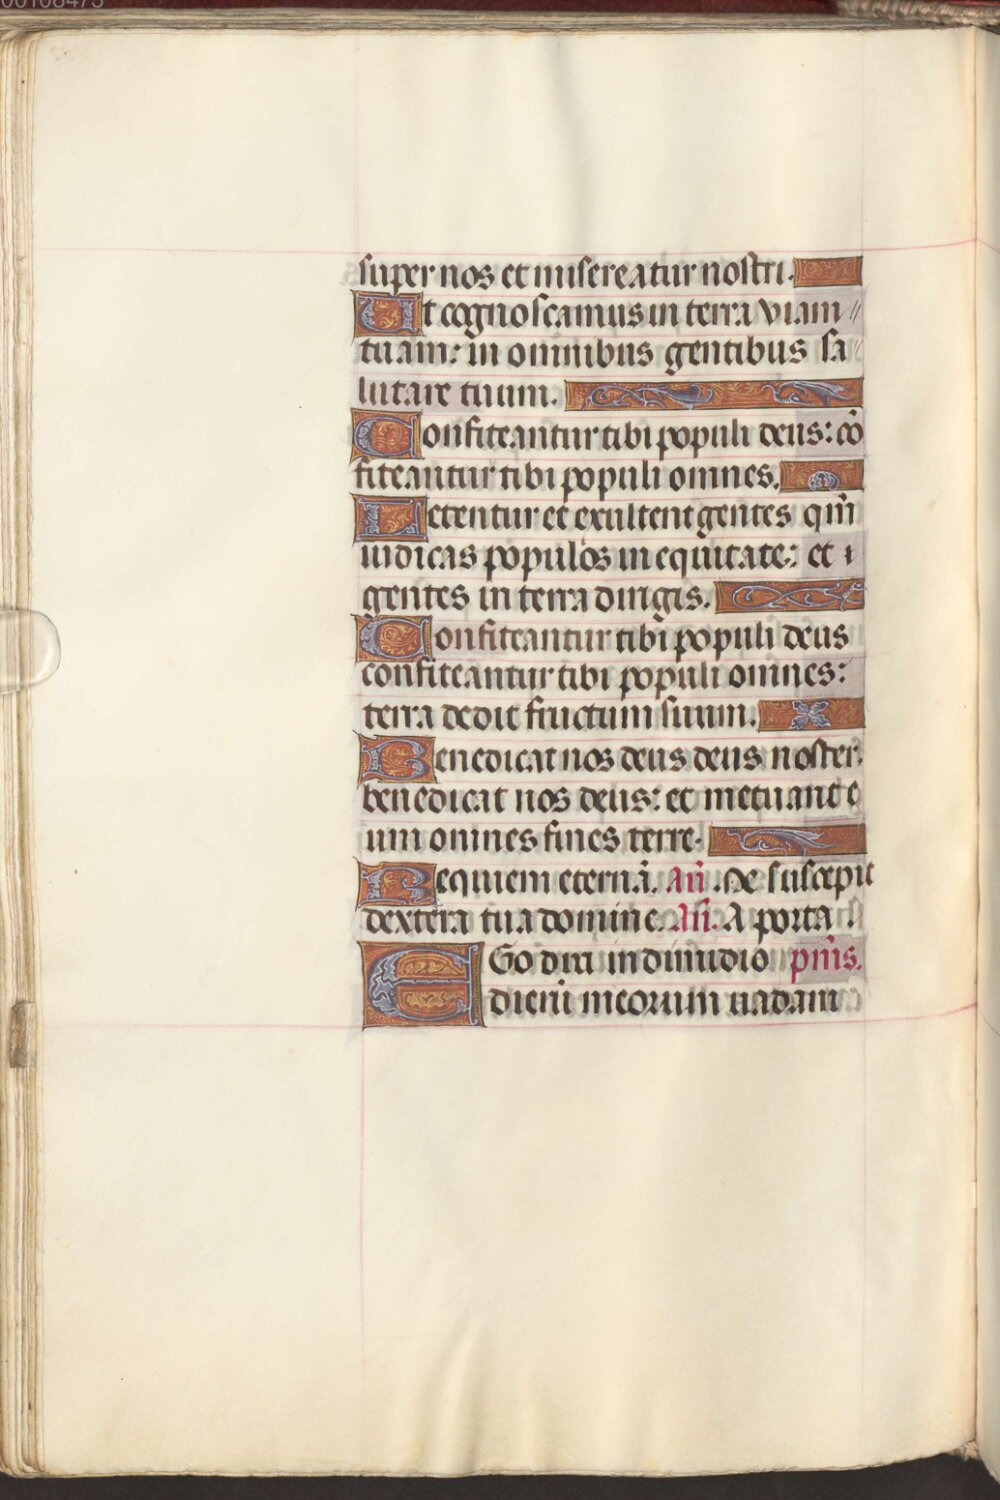 super nos et misereatur nostri.
Ut cognoscamus in terra viam //
tuam: in omnibus gentibus sa
lutare tuum.
Confiteantur tibi populi deus: cō
fiteantur tibi populi omnes.
Letentur et exultent gentes qm̄
iudicas populos in equitate: et
gentes in terra dirigis.
Confiteantur tibi populi deus
confiteantur tibi populi omnes:
terra dedit fructum suum.
Benedicat nos deus deus noster:
benedicat nos deus: et metuant e
um omnes fines terre.
Requiem eternā. Añ. Me suscepit
dextera tua domine. Añ. A porta
EGo dixi in dimidio pm̄s.
dierū meorum vadam